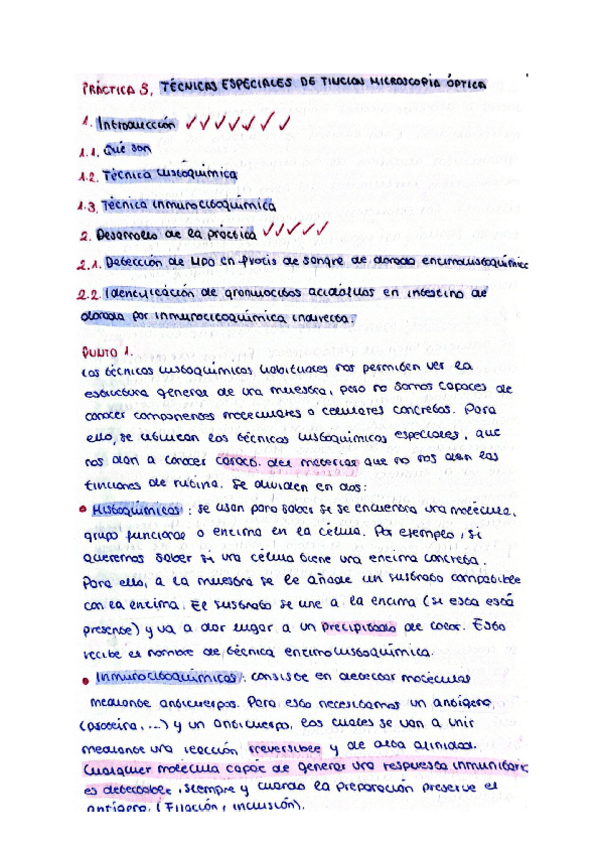 PRÁCTICA 3. TÉCNICAS ESPECIALES DE TINCION MICROSCOPIA ÓPTICA
1. Introducción
1.1. Qué son
1.2. Técnica histoquímica
1.3. Técnica inmunocitoquímica
2. Desarrollo de la practica
2.1. Detección de MPO en frotis de sangre de dorada enzimohistoquímic
2.2. Identificación de granulocitos acidófilos en intestino de
dorada por inmunocitoquímica indirecta.
PUNTO 1.
Las técnicas histoquímicas habituales nos permiten ver la
estructura general de una muestra, pero no somos capaces de
conocer componentes moleculares o celulares concretos. Para
ello, se utilizan las técnicas histoquímicas especiales, que
nos dan a conocer caract. del material que no nos dan las
tinciones de rutina. Se dividen en dos:
• Histoquímicas: se usan para saber si se encuentra una molécula,
grupo funcional o enzima en la célula. Por ejemplo, si
queremos saber si una célula tiene una enzima concreta.
Para ello, a la muestra se le añade un sustrato compatible
con la enzima. El sustrato se une a la enzima (si esta está
presente) y va a dar lugar a un precipitado de color. Esto
recibe el nombre de técnica enzimohistoquímica.
• Inmunocitoquímicas: consiste en detectar moléculas
mediante anticuerpos. Para esto necesitamos un antígeno
(proteína, ...) y un anticuerpo, los cuales se van a unir
mediante una reacción irreversible y de alta afinidad.
Cualquier molécula capaz de generar una respuesta inmunitaria
es detectable, siempre y cuando la preparación preserve el
antígeno. (Fijación, inclusión).